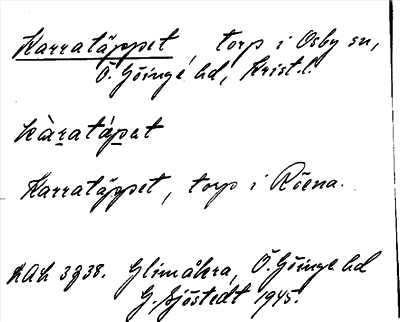 Karratäppet, torp i Osby sn,
Ö. Göinge hd, Krist. l.
kàratápat
Karratäppet, torp i Röena.
LAL 3938. Glimåkra, Ö. Göinge hd
G. Sjöstedt 1945.